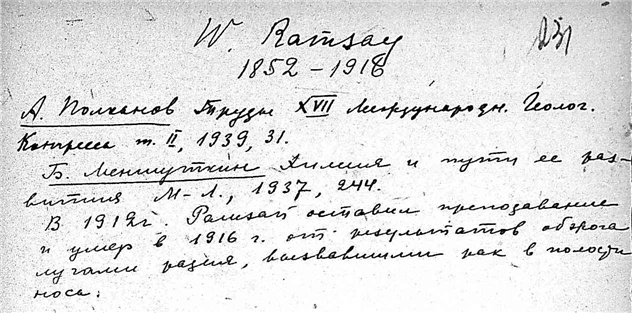 W. Ramsay
231
1852 – 1916
А. Полканов Труды XVII Международн. Геолог.
Конгресса т. II, 1939, 31.
Б. Меншуткин Химия и пути ее раз-
вития М-Л., 1937, 244.
В 1912г. Рамзай оставил преподавание
и умер в 1916 г. от результатов ожога
лучами радия, вызвавшими рак в полости
носа.